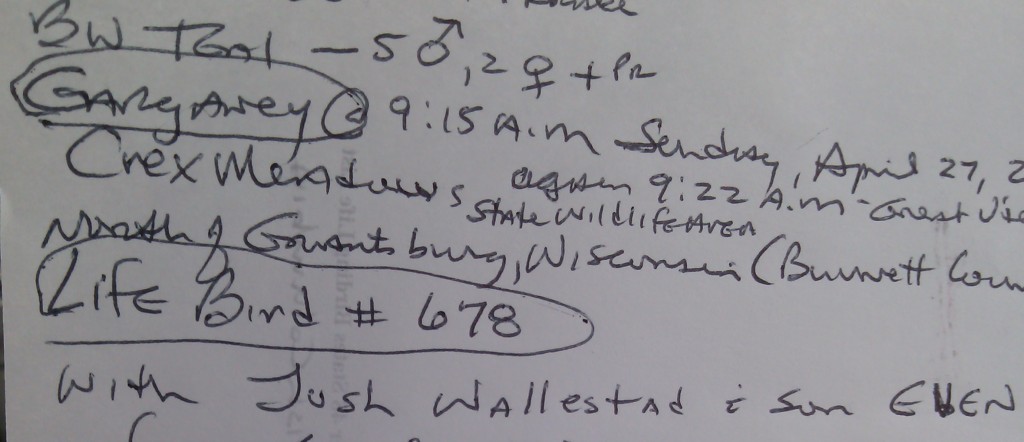 BW Teal - 5 ♂, 2 ♀ + Pr
Garganey @ 9:15 A.m Sunday, April 27, 2
Crex Meadows again 9:22 A.m - Great Vie
State Wildlife Area
North of Grantsburg, Wisconsin (Burnett Coun
Life Bird # 678
With Josh Wallestad & son EVEN